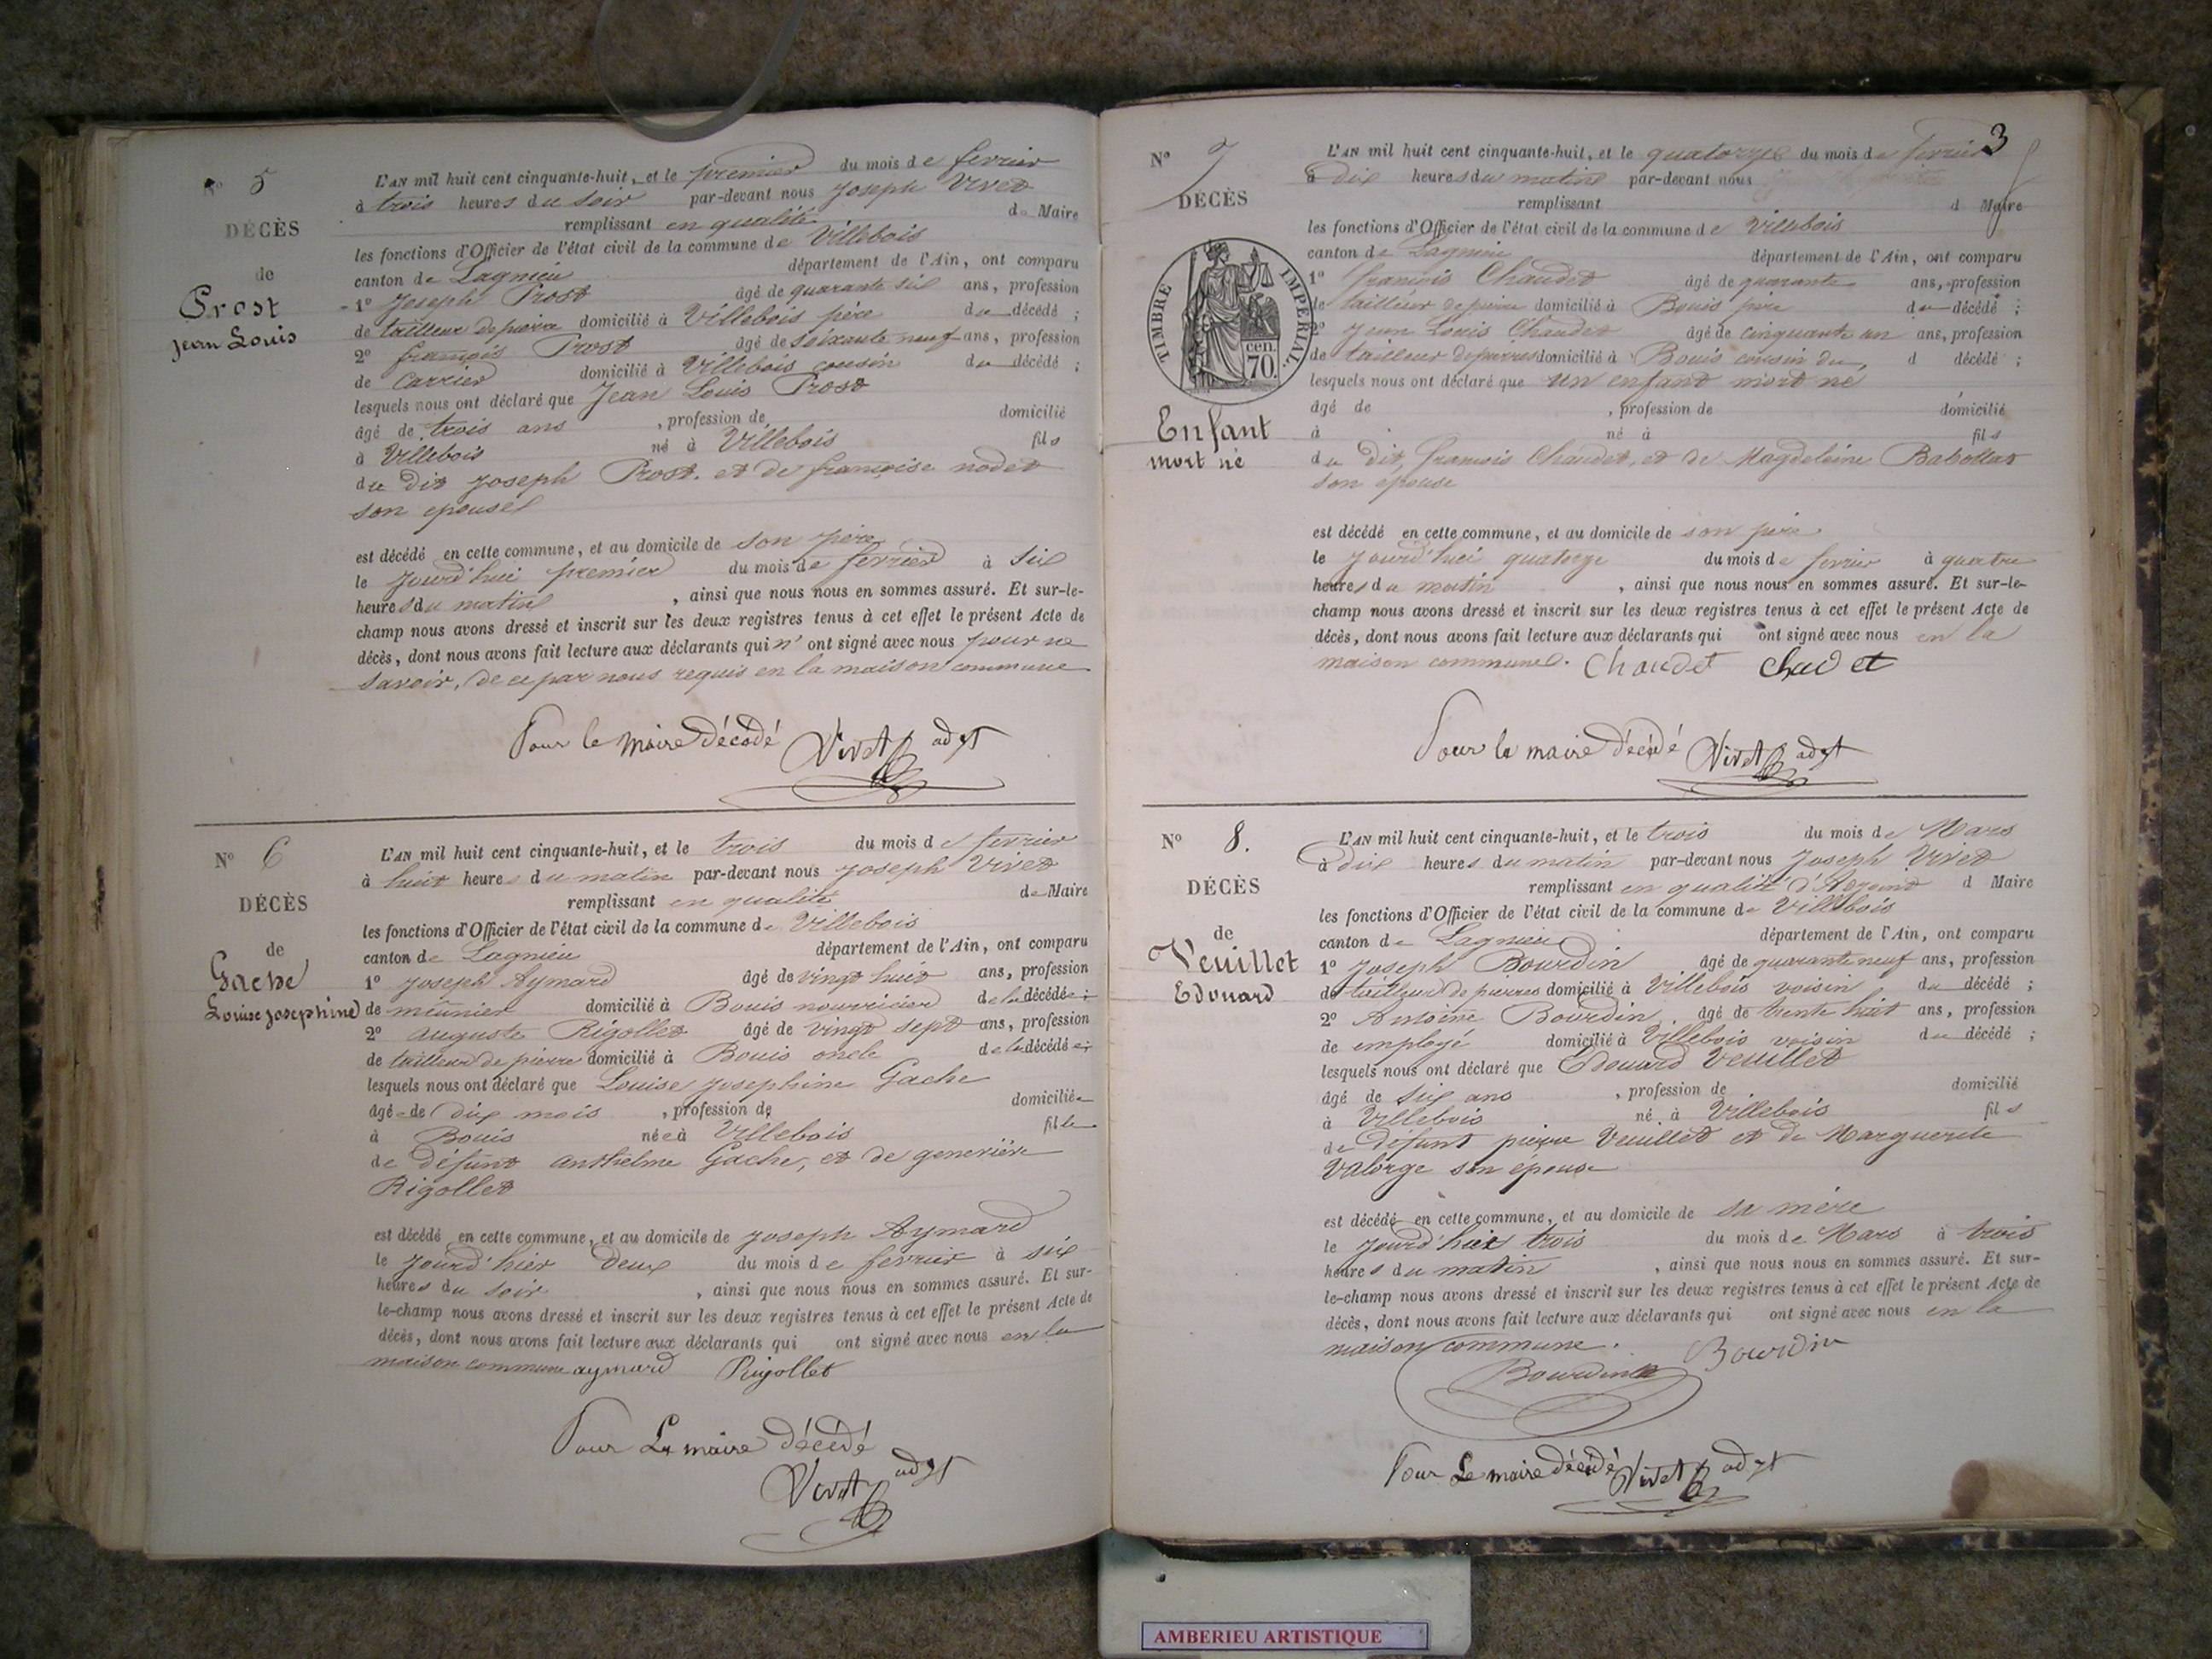 N° 5
DÉCÈS
de
Prost
Jean Louis
L'AN mil huit cent cinquante-huit, et le premier du mois de fevrier
à trois heures du soir par-devant nous Joseph Vivet
remplissant en qualité de Maire
les fonctions d'Officier de l'état civil de la commune de Villebois
canton de Lagnieu département de l'Ain, ont comparu
1° Joseph Prost âgé de quarante six ans, profession
de tailleur de pierre domicilié à Villebois père du décédé ;
2° françois Prost âgé de soixante neuf ans, profession
de carrier domicilié à Villebois cousin du décédé ;
lesquels nous ont déclaré que Jean Louis Prost
âgé de trois ans , profession de domicilié
à Villebois né à Villebois fils
du dit Joseph Prost. et de françoise nodet
son epouse
est décédé en cette commune, et au domicile de son père
le Jourd'hui premier du mois de fevrier à six
heures du matin , ainsi que nous nous en sommes assuré. Et sur-le-
champ nous avons dressé et inscrit sur les deux registres tenus à cet effet le présent Acte de
décès, dont nous avons fait lecture aux déclarants qui n' ont signé avec nous pour ne
savoir, de ce par nous requis en la maison commune
Pour le maire décédé Vivet adjt
N° 6
DÉCÈS
de
Gache
Louise Josephine
L'AN mil huit cent cinquante-huit, et le trois du mois de fevrier
à huit heures du matin par-devant nous Joseph Vivet
remplissant en qualité de Maire
les fonctions d'Officier de l'état civil de la commune de Villebois
canton de Lagnieu département de l'Ain, ont comparu
1° Joseph Aymard âgé de vingt huit ans, profession
de meunier domicilié à Bouis nourricier de la décédée ;
2° auguste Rigollet âgé de vingt sept ans, profession
de tailleur de pierre domicilié à Bouis oncle de la décédée ;
lesquels nous ont déclaré que Louise Josephine Gache
âgé de dix mois , profession de domiciliée
à Bouis née à Villebois fille
de défunt anthelme Gache, et de geneviève
Rigollet
est décédé en cette commune, et au domicile de Joseph Aymard
le Jourd'hier deux du mois de fevrier à six
heures du soir , ainsi que nous nous en sommes assuré. Et sur-
le-champ nous avons dressé et inscrit sur les deux registres tenus à cet effet le présent Acte de
décès, dont nous avons fait lecture aux déclarants qui ont signé avec nous en la
maison commune aymard Rigollet
Pour Le maire décédé
Vivet adjt
3
N° 7
DÉCÈS
TIMBRE IMPÉRIAL.
cen.
70.
Enfant
mort né
L'AN mil huit cent cinquante-huit, et le quatorze du mois de fevrier
à dix heures du matin par-devant nous
remplissant d Maire
les fonctions d'Officier de l'état civil de la commune de Villebois
canton de Lagnieu département de l'Ain, ont comparu
1° françois Chaudet âgé de quarante ans, profession
de tailleur de pierre domicilié à Bouis père du décédé ;
2° Jean Louis Chaudet âgé de cinquante un ans, profession
de tailleur de pierres domicilié à Bouis cousin du d décédé ;
lesquels nous ont déclaré que un enfant mort né
âgé de , profession de domicilié
à né à fils
du dit françois Chaudet, et de Magdeleine Babollat
son epouse
est décédé en cette commune, et au domicile de son père
le Jourd'hui quatorze du mois de fevrier à quatre
heures du matin , ainsi que nous nous en sommes assuré. Et sur-le-
champ nous avons dressé et inscrit sur les deux registres tenus à cet effet le présent Acte de
décès, dont nous avons fait lecture aux déclarants qui ont signé avec nous en la
maison commune. Chaudet Chaudet
Pour le maire décédé Vivet adjt
N° 8.
DÉCÈS
de
Veuillet
Edouard
L'AN mil huit cent cinquante-huit, et le trois du mois de Mars
à dix heures du matin par-devant nous Joseph Vivet
remplissant en qualité d'Adjoint d Maire
les fonctions d'Officier de l'état civil de la commune de Villebois
canton de Lagnieu département de l'Ain, ont comparu
1° Joseph Bourdin âgé de quarante neuf ans, profession
de tailleur de pierres domicilié à Villebois voisin du décédé ;
2° Antoine Bourdin âgé de trente huit ans, profession
de employé domicilié à Villebois voisin du décédé ;
lesquels nous ont déclaré que Edouard Veuillet
âgé de six ans , profession de domicilié
à Villebois né à Villebois fils
de défunt pierre Veuillet et de Marguerite
Valorge son épouse
est décédé en cette commune, et au domicile de sa mère
le Jourd'hui trois du mois de Mars à trois
heures du matin , ainsi que nous nous en sommes assuré. Et sur-
le-champ nous avons dressé et inscrit sur les deux registres tenus à cet effet le présent Acte de
décès, dont nous avons fait lecture aux déclarants qui ont signé avec nous en la
maison commune. Bourdin
Bourdin
Pour Le maire décédé Vivet adjt
AMBERIEU ARTISTIQUE